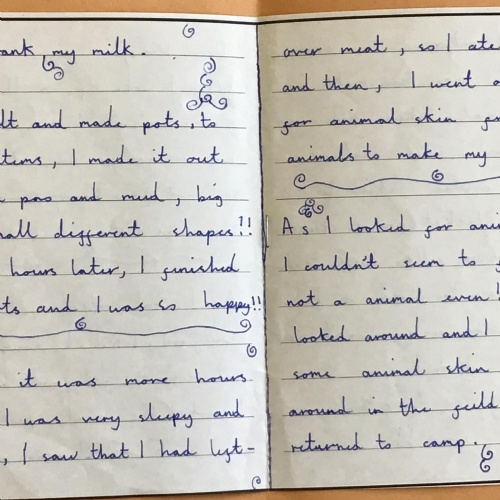 ank my milk.
lt and made pots, to
tems, I made it out
poo and mud, big
all different shapes!!
hours later, I finished
ts and I was so happy!!
it was more hours
I was very sleepy and
, I saw that I had left-
over meat, so I ate
and then, I went o
for animal skin fr
animals to make my
As I looked for ani
I couldn't seem to f
not a animal even!
looked around and I
some animal skin
around in the feild
returned to camp.